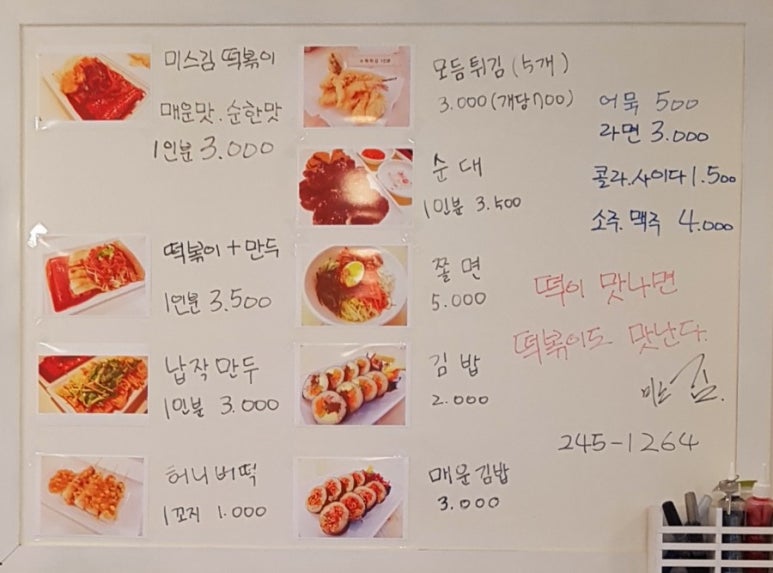 미스김 떡볶이
매운맛.순한맛
1인분 3.000
떡볶이+만두
1인분 3.500
납작만두
1인분 3.000
허니버떡
1꼬지 1.000
모듬튀김(5개)
3.000(개당700)
순대
1인분 3.500
쫄면
5.000
김밥
2.000
매운김밥
3.000
어묵 500
라면 3.000
콜라.사이다 1.500
소주.맥주 4.000
떡이 맛나면
떡볶이도 맛난다.
미스김.
245-1264